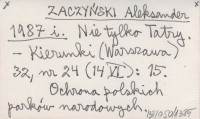 ZACZYŃSKI Aleksander
1987 i. Nie tylko Tatry.
- Kierunki (Warszawa)
32, nr 24 (14 VI): 15.
Ochrona polskich
parków narodowych.